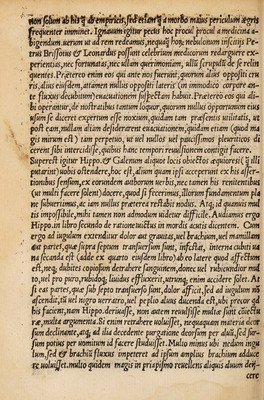 non solum ab his ꝗ ab empiricis, sed etiam ꝗ a morbo maius periculum ægris
frequenter imminet. Ignaum igitur pecus hoc procul procul a medicina a-
bigendum. uerum ut ad rem redeamus, nequaꝗ hoꝝ nebulonum inscitijs Pe-
trus Brissotus & Leonardus possunt celebrium medicorum redarguere ex-
perientias, nec fortunatas, nec ullam querimoniam, ulli scrupuli de se relin-
quentes. Præterea enim eos qui ante nos fuerunt, quorum alius oppositi cru
ris, alius eiusdem, attamen nullus oppositi lateris (in immodico corpore an-
te fluxus decubitum) euacuationem suspectam habuit. Præterea eos qui a-
bi operantur, de nostratibus tantum loquor, quorum nullus opportunum eius
usum se diceret expertum esse noxium, quidam tam præsentis utilitatis, ut
post eam, nullam aliam desiderarent euacuationem, quidam etiam (quod ma
gis mirum est) tam perpetuo, ut uel nullos uel paucissimos pleuriticos di
cerent sibi interidisse, quibus hanc tempori reuulsionem contigit facere.
Superest igitur Hippo. & Galenum aliquot locis obiectos æquiores (ꝗ illi
putarint) nobis ostendere, hoc est, alium quam ipsi acceperunt ex his asser-
tionibus sensum, ex eorundem authorum uerbis, nec tamen his renitentibus
(ut multi facere solent) docere, quod si fecerimus, illorum fundamentum pla
ne subuertimus, ac iam nullus præterea restabit nodus. Atꝗ id quamuis mul
tis impossibile, mihi tamen non admodum uidetur difficile. Audiamus ergo
Hippo. in libro secundo de ratione uictus in morbis acutis dicentem. Cum
ergo ad iugulum extenditur dolor aut grauitas, uel brachium, uel mamillam
aut partes, quæ supra septum transuersum sunt, infestat, interna cubiti ue
na secanda est (adde ex quarto eiusdem libro) ab eo latere quod affectum
est, neꝗ dubites copiosum detrahere sanguinem, donec uel rubicundior mul
to, uel pro puro, rubidoꝗ liuidus effluxerit, utrunꝗ enim accidere solet. At
si eas partes, quæ sub septo transuerso sunt, dolor afficit, sed ad iugulum nõ
ascendit, tũ uel nigro uerratro, uel peplio aluus ducenda est, ubi precor ꝗd
his facient, nam Hippo. deriuasse, non autem reuulsisse multæ sunt cõiectu
ræ, multa argumenta. Si enim retrahere uoluisset, nequaquam materia deor
sum declinante, atꝗ adeo ad ilia decedente purgatione deorsum per aluũ, sed sur-
sum potius per uomitum id facere studuisset. Multo minus ubi nedum ingu
lum, sed & brachij fluxus impeteret ad ipsum amplius brachium adduce
re uoluisset. multo quidem magis in priapismo reuellens aliquis aluum deij-
cere